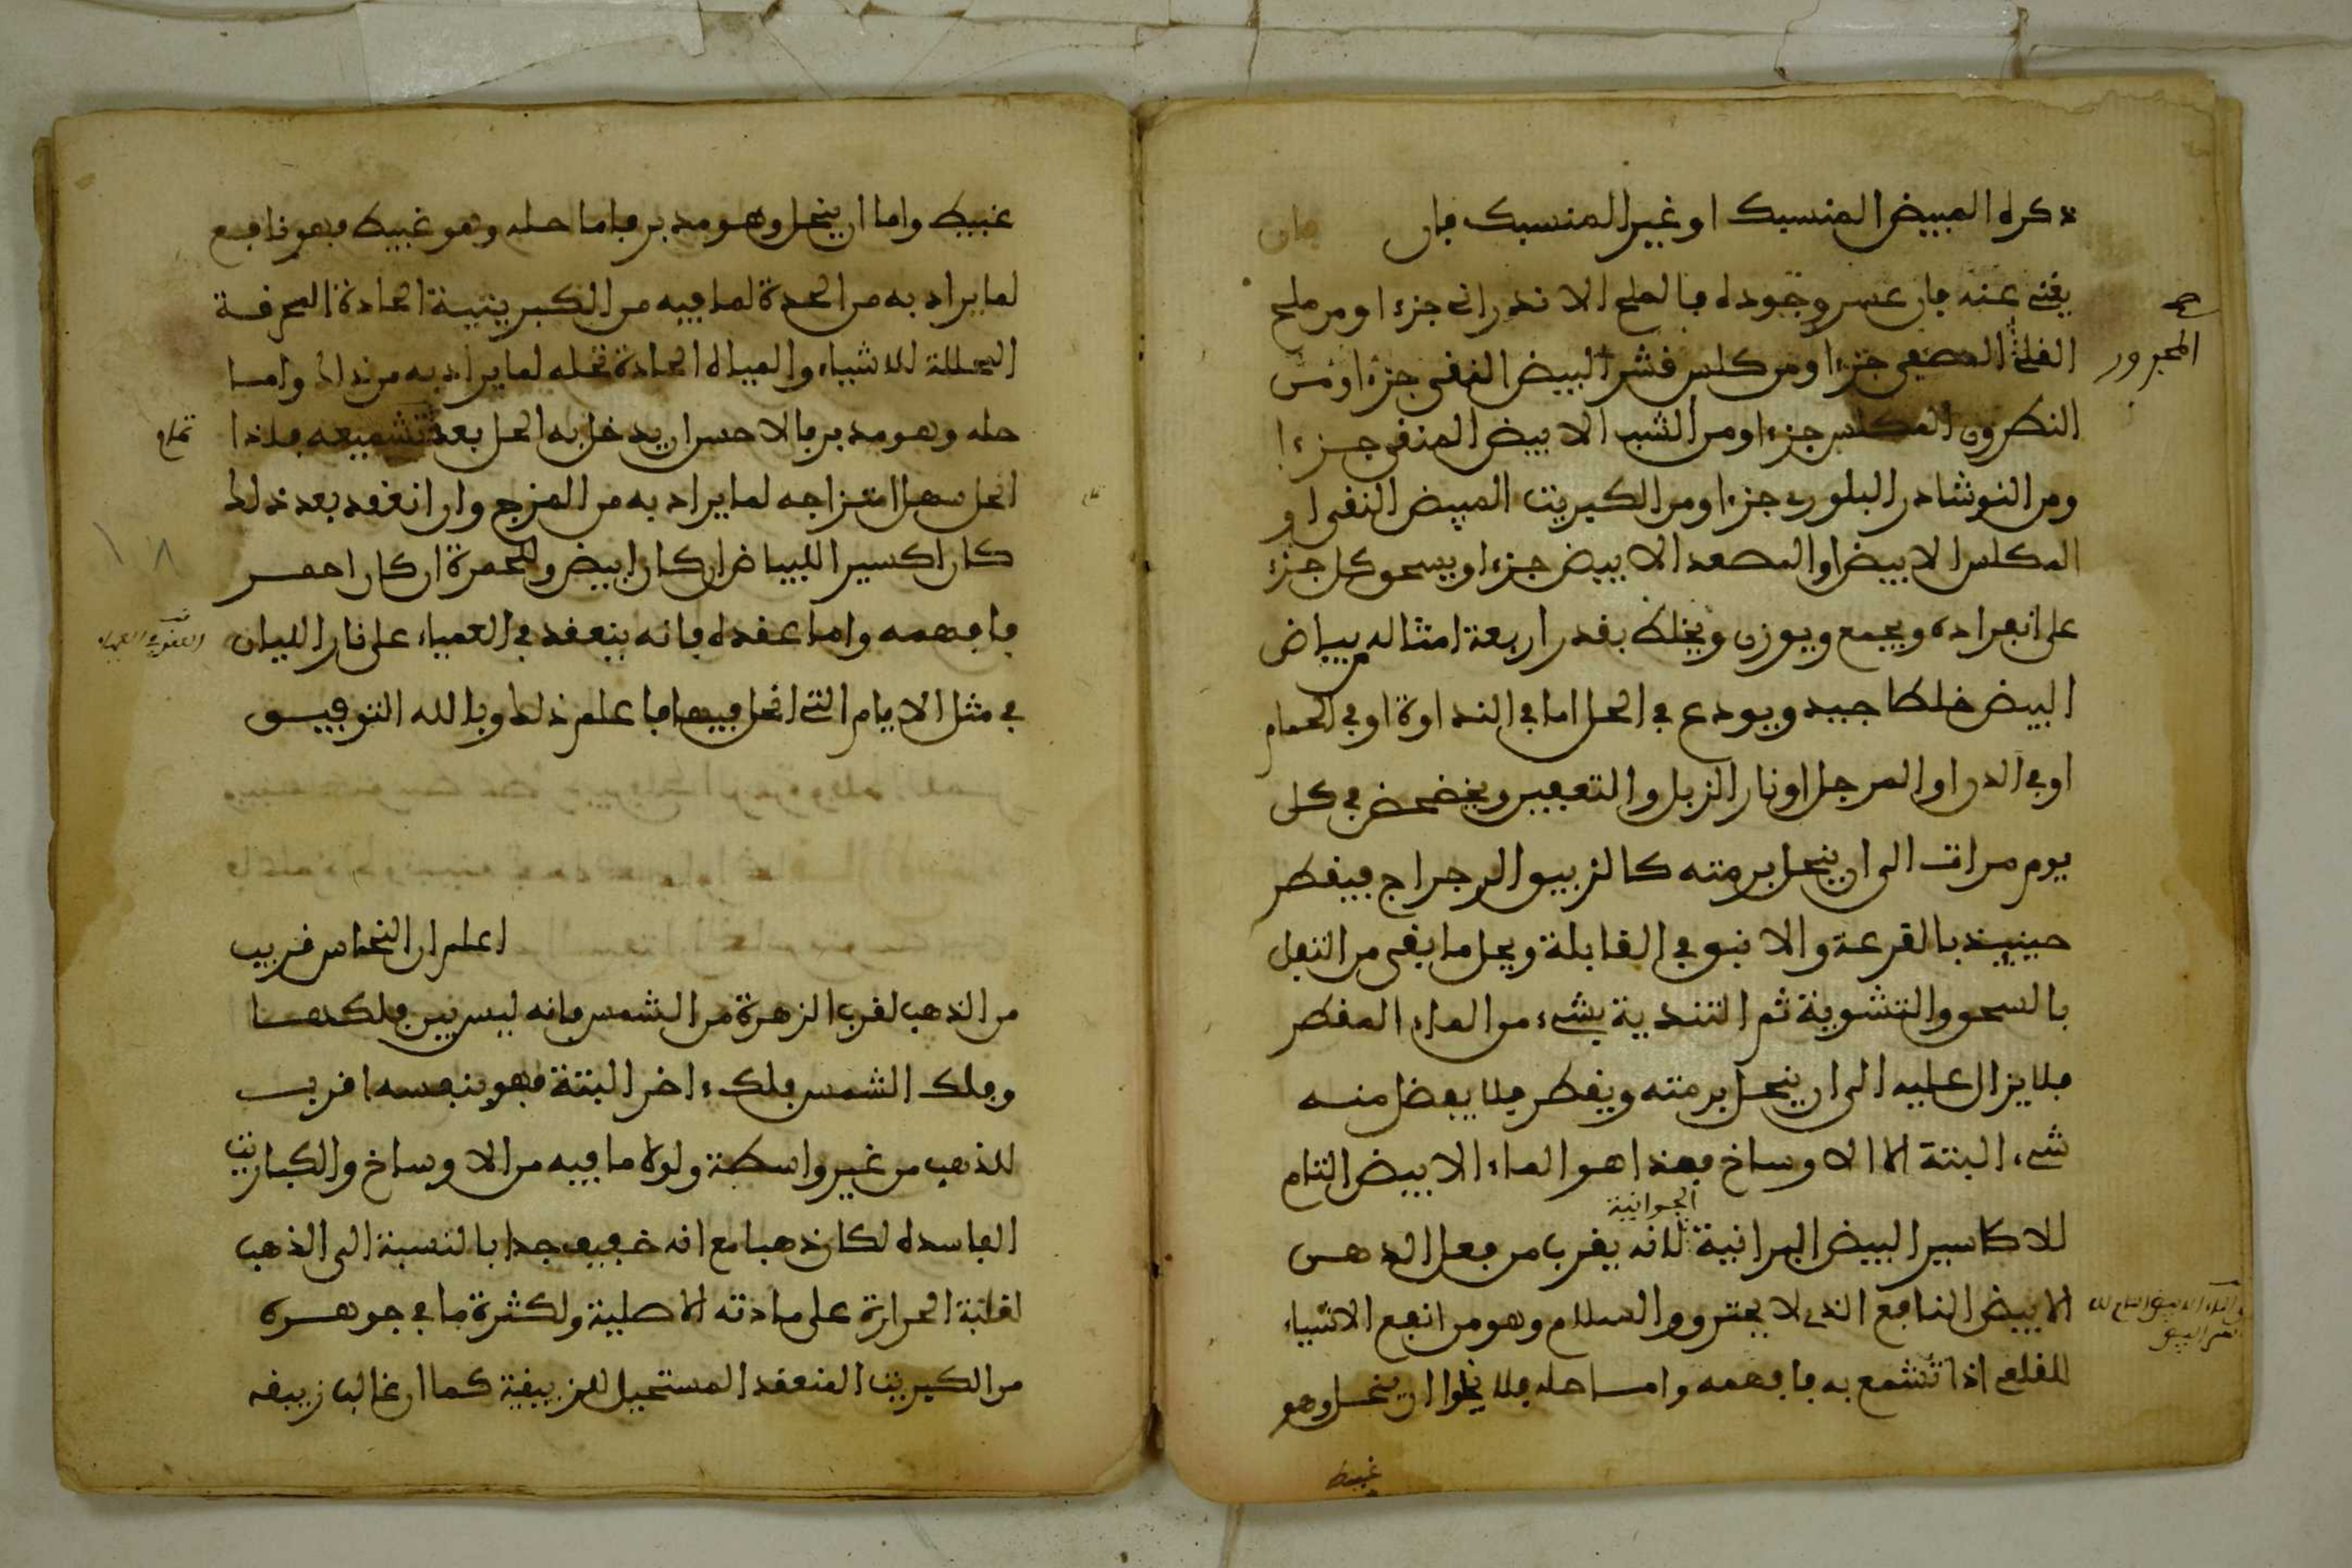 ذكره المبيض المنسبك او غير المنسبك فان
يغنى عنه فان عسر وجوده فالملح الاندرانى جزء او من ملح
القلى المصفى جزءا ومن كلس قشر البيض النقى جزء او من
النطرون المكلس جزءا ومن الشب الابيض المنقى جزءا
ومن النوشادر البلورى جزءا ومن الكبريت المبيض النقى او
المكلس الابيض او المصعد الابيض جزءا ويسحق كل جزء
على انفراده ويجمع ويوزن ويخلط بقدر اربعة امثاله من بياض
البيض خلطا جيدا ويودع فى الحل اما فى النداوة او فى الحمام
او فى الدن او المرجل او نار الزبل والتعفين ويخضخض فى كل
يوم مرات الى ان ينحل برمته كالزيبق الرجراج فيقطر
حينيذ بالقرعة والانبيق فى القابلة ويحل ما بقى من الثفل
بالسحق والتشوية ثم التندية بشىء من الماء المقطر
فلا يزال عليه الى ان ينحل برمته ويقطر فلا يفضل منه
شىء البتة الا الاوساخ فهذا هو الماء الابيض التام
الجوانية
للاكاسير البيض البرانية لانه يقرب من فعل الدهن
الابيض النافع الذى لا يحترق والسلام وهو من انفع الاشياء
للقلعى اذا تشمع به فافهمه واما حله فلا يخلوا ان ينحل وهو
غبيط
المجرور
غبيط واما ان ينحل وهو مدبر فاما حله وهو غبيط فهو نافع
لما يراد به من الحدة لما فيه من الكبريتية الحادة المحرقة
المحللة للاشياء والمياه الحادة تحله لما يراد به من ذلك واما
حله وهو مدبر فالاحسن ان يدخل به الحل بعد تشميعه فاذا
انحل سهل امتزاجه لما يراد به من المزج وان انعقد بعد ذلك
كان اكسيرا للبياض ان كان ابيض وللحمرة ان كان احمر
فافهمه واما عقده فانه ينعقد فى العمياء على نار اللبان
فى مثل الايام التى انحل فيها فاعلم ذلك وبالله التوفيق
اعلم ان النحاس قريب
من الذهب لقرب الزهرة من الشمس فانه ليس بين فلكها
وفلك الشمس فلك ءاخر البتة فهو بنفسه اقرب
للذهب من غير واسطة ولولا ما فيه من الاوساخ والكباريت
الفاسده لكان ذهبا مع انه خفيف جدا بالنسبة الى الذهب
لغلبة الحرارة على مادته الاصلية ولكثرة ما فى جوهره
من الكبريت المنعقد المستحيل للزيبقية كما ان غالب زيبقه